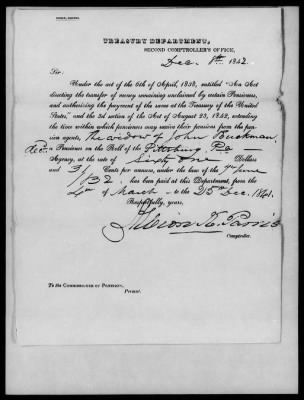 TREASURY DEPARTMENT,
SECOND COMPTROLLER'S OFFICE,
Dec. 1842.
Sir:
Under the act of the 6th of April, 1838, entitled "An Act
directing the transfer of money remaining unclaimed by certain Pensioners,
and authorizing the payment of the same at the Treasury of the United
States," and the 3d section of the Act of August 23, 1842, extending
the time within which pensioners may receive their pensions from the pen-
sion agents, The widow of John
Dec. a Pensioner on the Roll of the Pittsburg, Pa
Agency, at the rate of Sixty One Dollars
and Cents for annum, under the law of the 7th June
1832 has been paid at this Department, from the
4th of March to the 25th Dec. 1841.
Respectfully, yours,
Albion K. Parris
Comptroller.
To the COMMISSIONER OF PENSIONS,
Present.